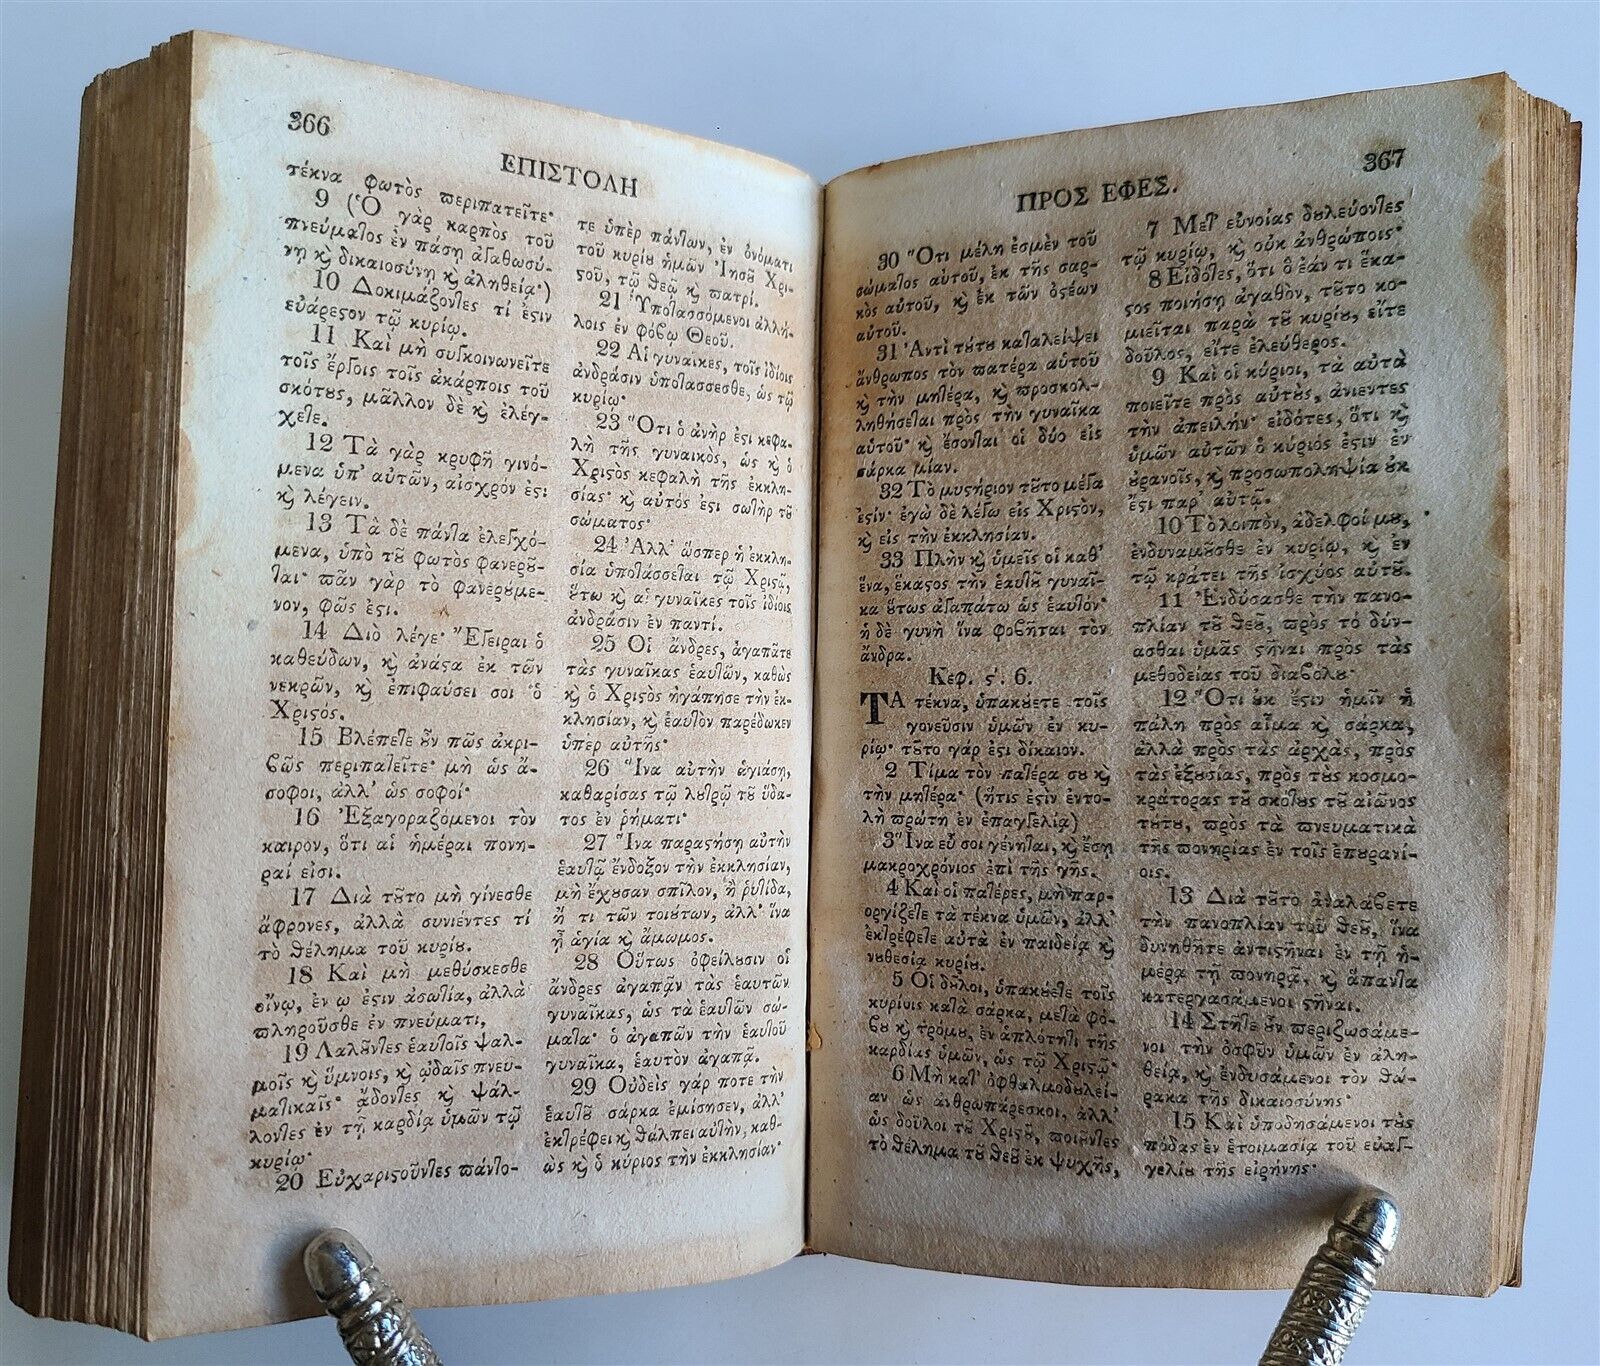 366
ΕΠΙΣΤΟΛΗ
τέκνα φωτὸς ϖεριπατεῖτε·
9 (Ὁ γὰρ καρπὸς τοῦ
πνεύματος ἐν πάσῃ ἀγαθωσύ-
νῃ ϗ δικαιοσύνῃ ϗ ἀληθείᾳ·)
10 Δοκιμάζοντες τί ἐςιν
εὐάρεςον τῷ κυρίῳ.
11 Καὶ μὴ συγκοινωνεῖτε
τοῖς ἔργοις τοῖς ἀκάρποις τοῦ
σκότȣς, μᾶλλον δὲ ϗ ἐλέγ-
χετε.
12 Τὰ γὰρ κρυφῆ γινό-
μενα ὑπ' αὐτῶν, αἰσχρόν ἐςι
ϗ λέγειν.
13 Τὰ δὲ πάντα ἐλεγχό-
μενα, ὑπὸ τȣ̃ φωτὸς φανερȣ̃-
ται· ϖᾶν γὰρ τὸ φανερȣ́με-
νον, φῶς ἐςι.
14 Διὸ λέγει· Ἔγειραι ὁ
καθεύδων, ϗ ἀνάςα ἐκ τῶν
νεκρῶν, ϗ ἐπιφαύσει σοι ὁ
Χριςός.
15 Βλέπετε ȣ̓͂ν πῶς ἀκρι-
ϐῶς περιπατεῖτε· μὴ ὡς ἄ-
σοφοι, ἀλλ' ὡς σοφοί·
16 Ἐξαγοραζόμενοι τὸν
καιρὸν, ὅτι αἱ ἡμέραι πονη-
ραί εἰσι.
17 Διὰ τȣ̃το μὴ γίνεσθε
ἄφρονες, ἀλλὰ συνιέντες τί
τὸ θέλημα τοῦ κυρίȣ.
18 Καὶ μὴ μεθύσκεσθε
οἴνῳ, ἐν ᾧ ἐςιν ἀσωτία, ἀλλὰ
ϖληροῦσθε ἐν πνεύματι,
19 Λαλȣ̃ντες ἑαυτοῖς ψαλ-
μοῖς ϗ ὕμνοις, ϗ ᾠδαῖς πνευ-
ματικαῖς· ᾄδοντες ϗ ψάλ-
λοντες ἐν τῇ καρδίᾳ ὑμῶν τῷ
κυρίῳ·
20 Εὐχαριςοῦντες πάντο-
τε ὑπὲρ πάντων, ἐν ὀνόματι
τοῦ κυρίȣ ἡμῶν Ἰησȣ̃ Χρι-
ςοῦ, τῷ θεῷ ϗ ϖατρί.
21 Ὑποτασσόμενοι ἀλλή-
λοις ἐν φόϐῳ Θεοῦ.
22 Αἱ γυναικες, τοῖς ἰδίοις
ἀνδράσιν ὑποτασσεσθε, ὡς τῷ
κυρίῳ·
23 Ὅτι ὁ ἀνήρ ἐςι κεφα-
λὴ τῆς γυναικὸς, ὡς ϗ ὁ
Χριςὸς κεφαλὴ τῆς ἐκκλη-
σίας· ϗ αὐτός ἐςι σωτὴρ τȣ̃
σώματος·
24 Ἀλλ' ὥσπερ ἡ ἐκκλη-
σία ὑποτάσσεται τῷ Χριςῷ,
ȣ̔́τω ϗ αἱ γυναῖκες τοῖς ἰδίοις
ἀνδράσιν ἐν παντί.
25 Οἱ ἄνδρες, ἀγαπᾶτε
τὰς γυναῖκας ἑαυτῶν, καθὼς
ϗ ὁ Χριςὸς ἠγάπησε τὴν ἐκ-
κλησίαν, ϗ ἑαυτὸν παρέδωκεν
ὑπὲρ αὐτῆς·
26 Ἵνα αὐτὴν ἁγιάσῃ,
καθαρίσας τῷ λȣτρῷ τȣ̃ ὕδα-
τος ἐν ῥήματι·
27 Ἵνα παραςήσῃ αὐτὴν
ἑαυτῷ ἔνδοξον τὴν ἐκκλησίαν,
μὴ ἔχȣσαν σπῖλον, ἢ ῥυτίδα,
ἤ τι τῶν τοιȣ́των, ἀλλ' ἵνα
ᾖ ἁγία ϗ ἄμωμος.
28 Οὕτως ὀφείλȣσιν οἱ
ἄνδρες ἀγαπᾷν τὰς ἑαυτῶν
γυναῖκας, ὡς τὰ ἑαυτῶν σώ-
ματα· ὁ ἀγαπῶν τὴν ἑαυτοῦ
γυναῖκα, ἑαυτὸν ἀγαπᾷ.
29 Οὐδεὶς γάρ ποτε τὴν
ἑαυτȣ̃ σάρκα ἐμίσησεν, ἀλλ'
ἐκτρέφει ϗ θάλπει αὐτὴν, καθ-
ὼς ϗ ὁ κύριος τὴν ἐκκλησίαν·
ΠΡΟΣ ΕΦΕΣ.
367
30 Ὅτι μέλη ἐσμὲν τοῦ
σώματος αὐτοῦ, ἐκ τῆς σαρ-
κὸς αὐτοῦ, ϗ ἐκ τῶν ὀςέων
αὐτοῦ.
31 Ἀντὶ τȣ́τȣ καταλείψει
ἄνθρωπος τὸν πατέρα αὐτοῦ
ϗ τὴν μητέρα, ϗ προσκολ-
ληθήσεται πρὸς τὴν γυναῖκα
αὐτοῦ· ϗ ἔσονται οἱ δύο εἰς
σάρκα μίαν.
32 Τὸ μυςήριον τȣ̃το μέγα
ἐςίν· ἐγὼ δὲ λέγω εἰς Χριςὸν,
ϗ εἰς τὴν ἐκκλησίαν.
33 Πλὴν ϗ ὑμεῖς οἱ καθ'
ἕνα, ἕκαςος τὴν ἑαυτȣ̃ γυναῖ-
κα ȣ̔́τως ἀγαπάτω ὡς ἑαυτόν·
ἡ δὲ γυνὴ ἵνα φοϐῆται τὸν
ἄνδρα.
Κεφ. ϛ'. 6.
ΤΑ τέκνα, ὑπακȣ́ετε τοῖς
γονεῦσιν ὑμῶν ἐν κυ-
ρίῳ· τȣ̃το γάρ ἐςι δίκαιον.
2 Τίμα τὸν πατέρα σȣ ϗ
τὴν μητέρα· (ἥτις ἐςὶν ἐντο-
λὴ ϖρώτη ἐν ἐπαγγελίᾳ)
3 Ἵνα εὖ σοι γένηται, ϗ ἔσῃ
μακροχρόνιος ἐπὶ τῆς γῆς.
4 Καὶ οἱ πατέρες, μὴ παρ-
οργίζετε τὰ τέκνα ὑμῶν, ἀλλ'
ἐκτρέφετε αὐτὰ ἐν παιδείᾳ ϗ
νȣθεσίᾳ κυρίȣ.
5 Οἱ δȣ̃λοι, ὑπακȣ́ετε τοῖς
κυρίοις κατὰ σάρκα, μετὰ φό-
ϐȣ ϗ τρόμȣ, ἐν ἁπλότητι τῆς
καρδίας ὑμῶν, ὡς τῷ Χριςῷ·
6 Μὴ κατ' ὀφθαλμοδȣλεί-
αν ὡς ἀνθρωπάρεσκοι, ἀλλ'
ὡς δοῦλοι τȣ̃ Χριςȣ̃, ποιȣ̃ντες
τὸ θέλημα τȣ̃ θεȣ̃ ἐκ ψυχῆς,
7 Μετ' εὐνοίας δȣλεύοντες
τῷ κυρίῳ, ϗ οὐκ ἀνθρώποις·
8 Εἰδότες, ὅτι ὃ ἐάν τι ἕκα-
ςος ποιήσῃ ἀγαθὸν, τȣ̃το κο-
μιεῖται παρὰ τȣ̃ κυρίȣ, εἴτε
δοῦλος, εἴτε ἐλεύθερος.
9 Καὶ οἱ κύριοι, τὰ αὐτὰ
ποιεῖτε πρὸς αὐτȣ̀ς, ἀνιέντες
τὴν ἀπειλήν· εἰδότες, ὅτι ϗ
ὑμῶν αὐτῶν ὁ κύριός ἐςιν ἐν
ȣ̓ρανοῖς, ϗ προσωποληψία ȣ̓κ
ἔςι παρ' αὐτῷ.
10 Τὸ λοιπὸν, ἀδελφοί μȣ,
ἐνδυναμȣ̃σθε ἐν κυρίῳ, ϗ ἐν
τῷ κράτει τῆς ἰσχύος αὐτȣ̃.
11 Ἐνδύσασθε τὴν πανο-
πλίαν τȣ̃ θεȣ̃, πρὸς τὸ δύν-
ασθαι ὑμᾶς ςῆναι πρὸς τὰς
μεθοδείας τοῦ διαϐόλȣ·
12 Ὅτι ȣ̓κ ἔςιν ἡμῖν ἡ
πάλη πρὸς αἷμα ϗ σάρκα,
ἀλλὰ πρὸς τὰς ἀρχὰς, πρὸς
τὰς ἐξȣσίας, πρὸς τȣ̀ς κοσμο-
κράτορας τȣ̃ σκότȣς τȣ̃ αἰῶνος
τȣ́τȣ, πρὸς τὰ ϖνευματικὰ
τῆς ϖονηρίας ἐν τοῖς ἐπȣρανί-
οις.
13 Διὰ τȣ̃το ἀναλάϐετε
τὴν πανοπλίαν τȣ̃ θεȣ̃, ἵνα
δυνηθῆτε ἀντιςῆναι ἐν τῇ ἡ-
μέρᾳ τῇ ϖονηρᾷ, ϗ ἅπαντα
κατεργασάμενοι ςῆναι.
14 Στῆτε ȣ̓͂ν ϖεριζωσάμε-
νοι τὴν ὀσφῦν ὑμῶν ἐν ἀλη-
θείᾳ, ϗ ἐνδυσάμενοι τὸν θώ-
ρακα τῆς δικαιοσύνης·
15 Καὶ ὑποδησάμενοι τȣ̀ς
πόδας ἐν ἑτοιμασίᾳ τοῦ εὐαγ-
γελίȣ τῆς εἰρήνης·